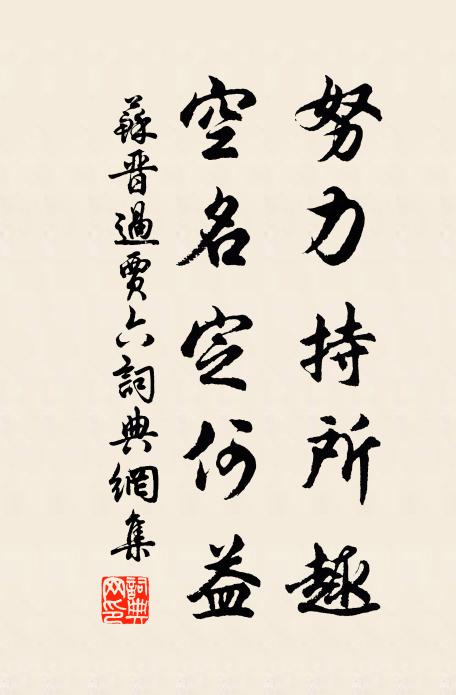 努力持所趣
空名定何益
蘇晋過賈六詞典網集
詞典网印